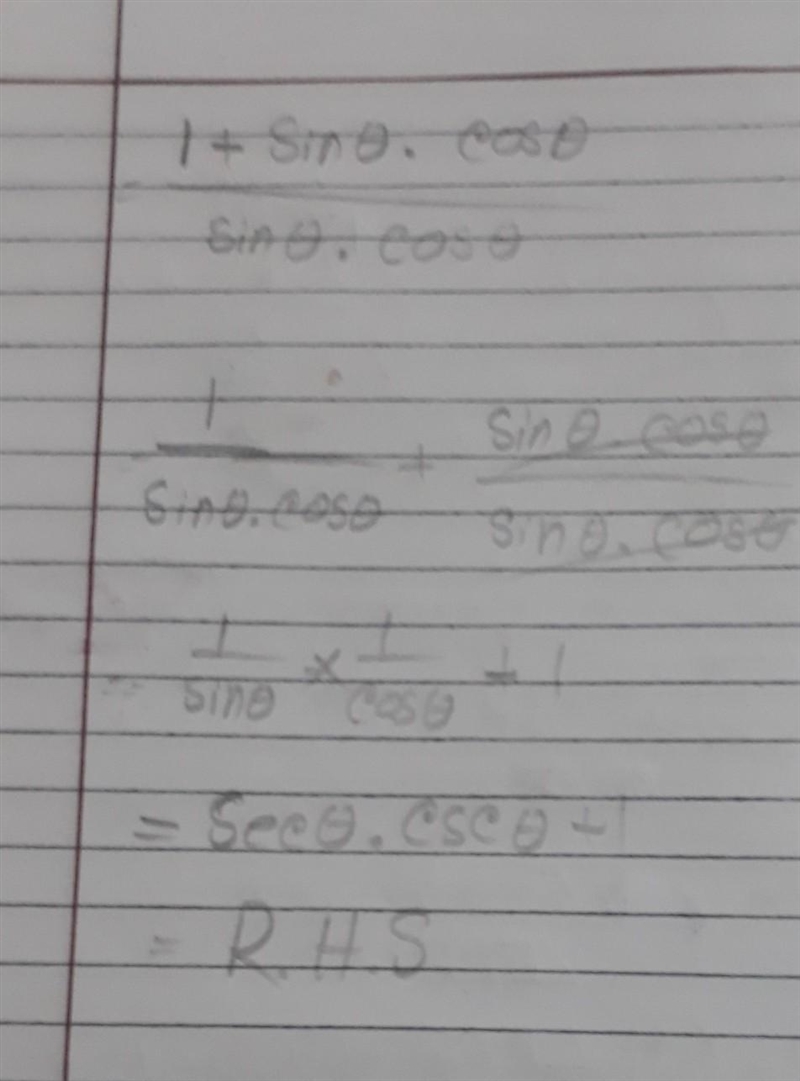 1 + Sinθ . cosθ
sinθ . cosθ
1 + sinθ . cosθ
sinθ . cosθ sinθ . cosθ
= 1 × 1 + 1
sinθ cosθ
= Secθ . cscθ + 1
= R.H.S